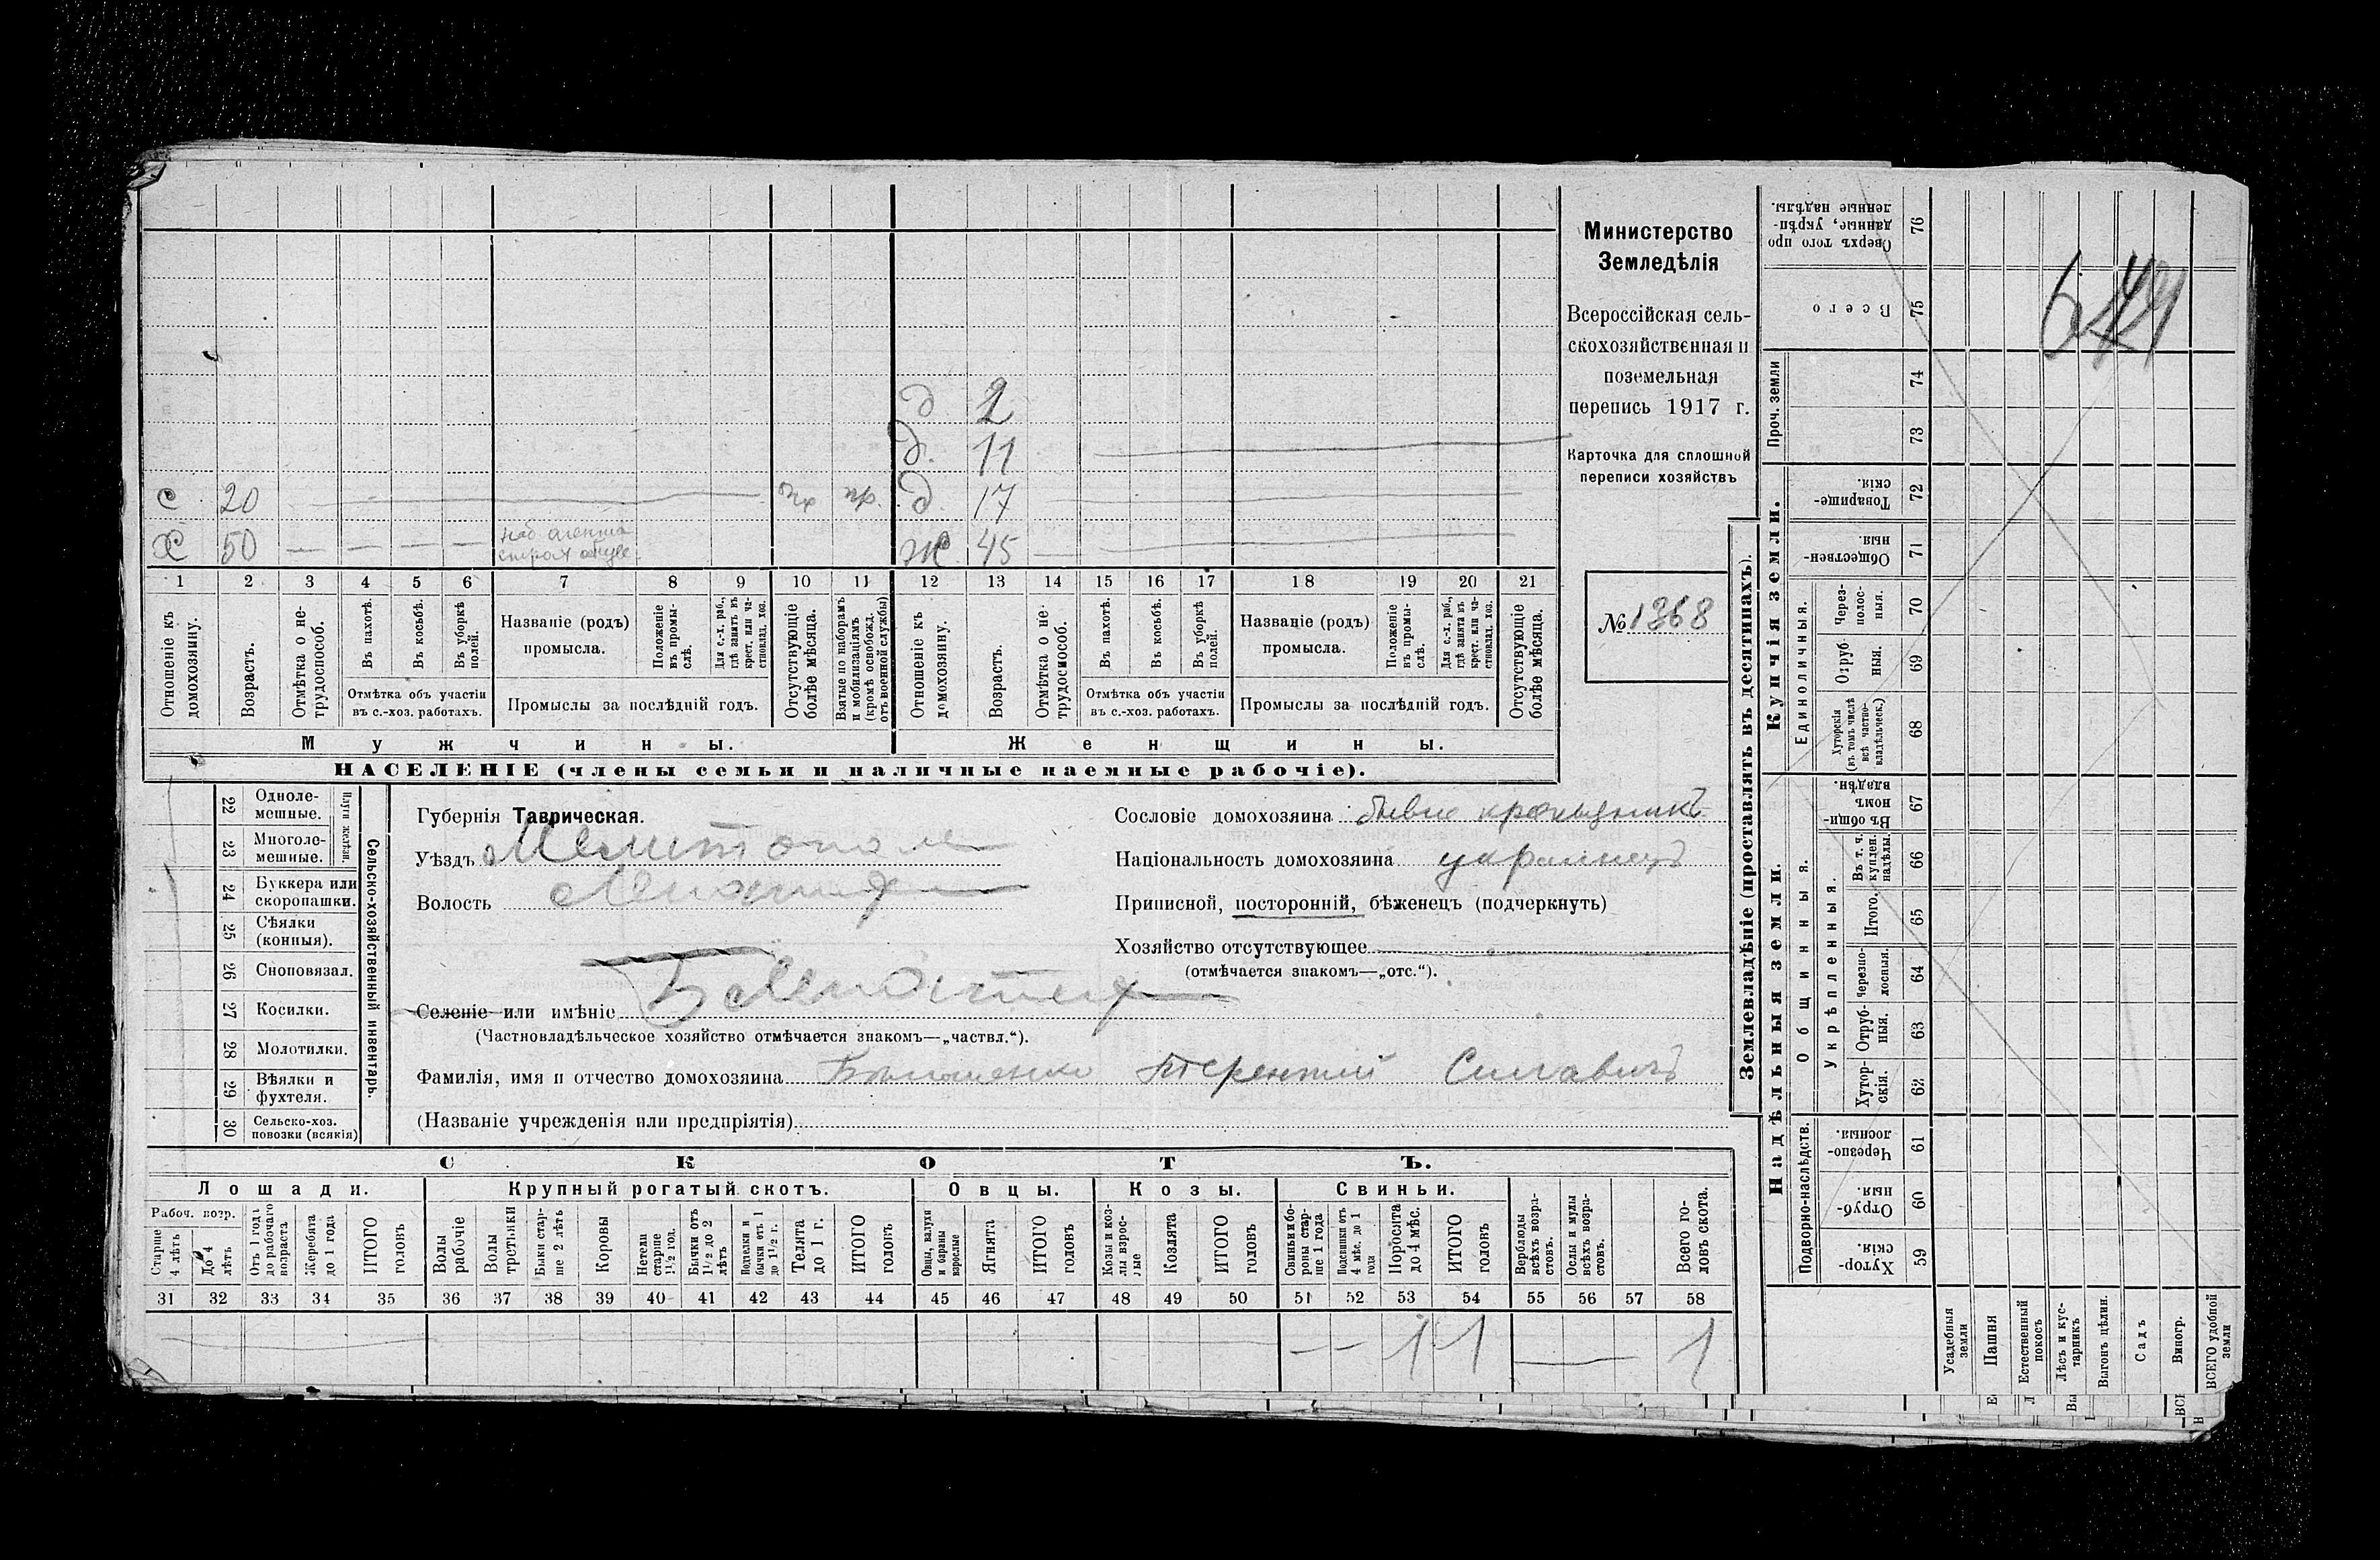 д 2
д. 11
с 20 пр. д. 17
х 50 ж 45
1 2 3 4 5 6 7 8 9 10 11 12 13 14 15 16 17 18 19 20 21
Отношеніе къ домохозяину.
Возрастъ.
Отмѣтка о не-трудоспособ.
Въ пахотѣ.
Въ косьбѣ.
Въ уборкѣ полей.
Отмѣтка объ участіи
въ с.-хоз. работахъ.
Названіе (родъ)
промысла.
Положеніе въ промы-слѣ.
Для с.-х. раб., гдѣ занятъ въ крест. или ча-стновлад. хоз.
Промыслы за послѣдній годъ.
Отсутствующіе болѣе мѣсяца.
Взятые по наборамъ и мобилизаціямъ (кромѣ освобожд. отъ военной службы)
Отношеніе къ домохозяину.
Возрастъ.
Отмѣтка о не-трудоспособ.
Въ пахотѣ.
Въ косьбѣ.
Въ уборкѣ полей.
Отмѣтка объ участіи
въ с.-хоз. работахъ.
Названіе (родъ)
промысла.
Положеніе въ промы-слѣ.
Для с.-х. раб., гдѣ занята въ крест. или ча-стновлад. хоз.
Промыслы за послѣдній годъ.
Отсутствующіе болѣе мѣсяца.
Мужчины. Женщины.
НАСЕЛЕНІЕ (члены семьи и наличные наемные рабочіе).
Министерство
Земледѣлія
Всероссійская сель-
скохозяйственная и
поземельная
перепись 1917 г.
Карточка для сплошной
переписи хозяйствъ
№ 1368
Сельско-хозяйственный инвентарь.
Плуги желѣзн.
22 Одноле-мешные.
23 Многоле-мешные.
24 Буккера или скоропашки.
25 Сѣялки (конныя).
26 Сноповязал.
27 Косилки.
28 Молотилки.
29 Вѣялки и фухтеля.
30 Сельско-хоз. повозки (всякія)
Губернія Таврическая.
Уѣздъ Мелитополь
Волость
Селеніе или имѣніе
(Частновладѣльческое хозяйство отмѣчается знакомъ—„частвл.“).
Фамилія, имя и отчество домохозяина Терентій Силавичъ
(Названіе учрежденія или предпріятія)
Сословіе домохозяина
Національность домохозяина украинецъ
Приписной, посторонній, бѣженецъ (подчеркнуть)
Хозяйство отсутствующее
(отмѣчается знакомъ—„отс.“).
СКОТЪ.
Лошади. Крупный рогатый скотъ. Овцы. Козы. Свиньи.
Рабоч. возр.
Старше 4 лѣтъ
До 4 лѣтъ
Отъ 1 года до рабочаго возраста
Жеребята до 1 года
ИТОГО головъ
Волы рабочіе
Волы третьяки
Быки стар-ше 2 лѣтъ
Коровы
Нетели старше 1½ год.
Бычки отъ 1½ до 2 лѣтъ
Подтелки и бычки отъ 1 до 1½ г.
Телята до 1 г.
ИТОГО головъ
Овцы, валухи и бараны взрослые
Ягнята
ИТОГО головъ
Козы и коз-лы взрос-лые
Козлята
ИТОГО головъ
Свиньи и бо-ровы стар-ше 1 года
Подсвинки отъ 4 мѣс. до 1 года
Поросята до 4 мѣс.
ИТОГО головъ
Верблюды всѣхъ возра-стовъ.
Ослы и мулы всѣхъ возра-стовъ.
Всего го-ловъ скота.
31 32 33 34 35 36 37 38 39 40 41 42 43 44 45 46 47 48 49 50 51 52 53 54 55 56 57 58
1 1 1
Землевладѣніе (проставлять въ десятинахъ).
Купчія земли.
Надѣльныя земли.
Сверхъ того про-данные, укрѣп-ленные надѣлы. 76
Всего 75
Проч. земли
74
73
Товарище-скія. 72
Обществен-ныя. 71
Единоличныя.
Через-полос-ныя. 70
Отруб-ныя. 69
Хуторскія (въ томъ числѣ всѣ частно-владѣльческ.) 68
Общинныя.
Въ общин-номъ владѣн. 67
Укрѣпленныя.
Въ т. ч. куплен. надѣлы. 66
Итого. 65
Черезпо-лосныя. 64
Отруб-ныя. 63
Хутор-скія. 62
Подворно-наслѣдств.
Черезпо-лосныя. 61
Отруб-ныя. 60
Хутор-скія. 59
Усадебныя земли
Пашня
Естественный покосъ
Лѣсъ и кус-тарникъ
Выгонъ цѣлин.
Садъ
Виногр.
ВСЕГО удобной земли